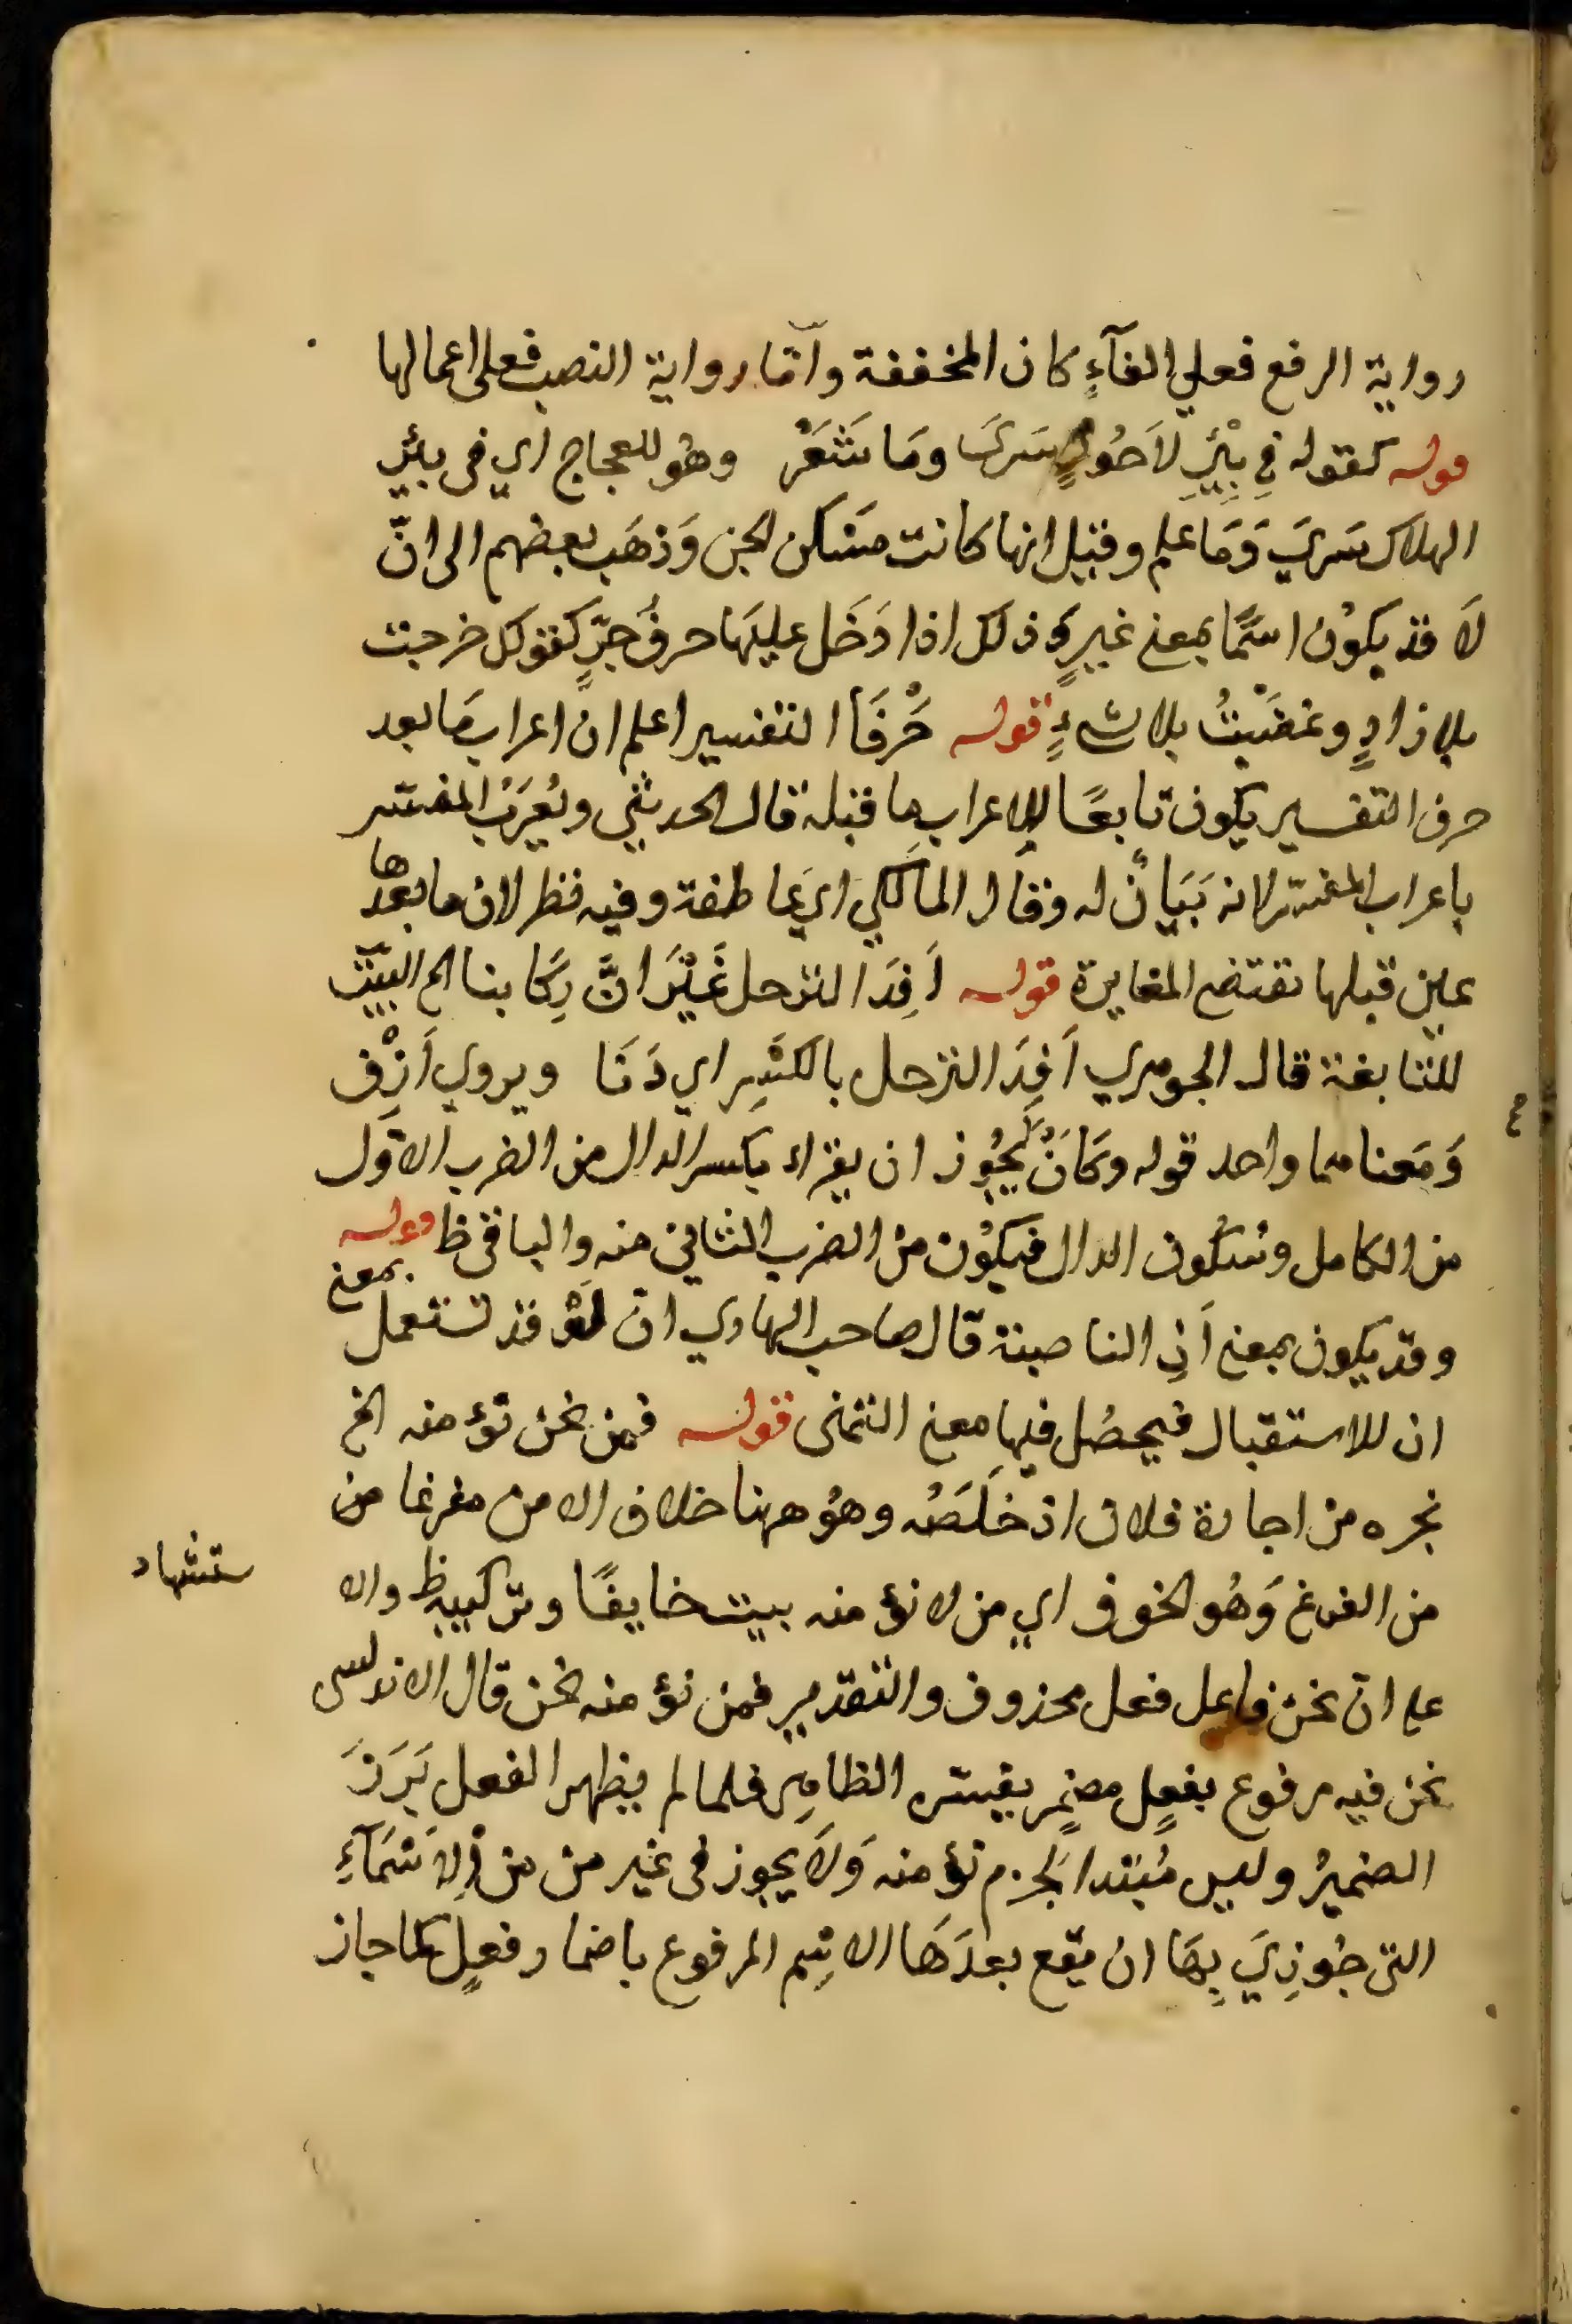 رواية الرفع فعلي الغآءِ كان المخففة وآمّا رواية النصب فعلى اعمالها
قوله كقوله فِي بِيْرِ لَاحُورٍ سَرَىَ وَمَا شَعَرْ وهُو للعجاج اي في بيرِ
الهلاك سَرِيَ وَمَا علم وقيل انها كانت مسَكن الجن وَذهَب بعضهم الى انّ
لَا قد يكوُن اسمًا بمعنى غيرٍ وَذلك اذا دَخَل عليهَا حرفُ جرٍّ كقولك خرجت
بلا زادٍ وغضَبْتُ بلا شيءٍ قوله حَرْفَا التفسير اعلم ان اعراب مَا بعد
حرف التفسير يكون تابعًا للاعراب ما قبله قال الحديثي ويُعرَبُ المفسّر
باعراب المفسّر لانه بَيَانٌ له وقال المالكي اي عاطفة وفيه نظر لان ما بعدها
عين قبلها تقتضي المغايرة قوله اَفِدَ الترحل غَيْرَ انَّ رِكَابنا الخ البيَت
للنابغة قال الجوهري اَفِدَ الترحل بالكسْرِ اي دَنَا ويروي اَزِفَ
وَمَعناهما واحد قوله وكَانَ يجُوز ان يقراء بكسر الدال من الضرب الاوّل
من الكامل وسُكُون الدال فيكوُن من الضرب الثاني منه والباقي ظ قوله
وقد يكون بمعنى اَنِ الناصبة قال صاحب الهادي انّ لَوْ قد تستعمل بمعنى
ان للاستقبال فيحصُل فيها معنى التمني قوله فمن نحن نؤمنه الخ
نجره من اجارة فلان اذ خلَصَهُ وهُو ههنا خلاف الامن مفرغا من
من الفزع وَهُو الخوف اي من لا نؤمنه بيت خايفًا وتركيبه ظ والا
ستشهاد
على انّ نحن فاعل فعل محذوف والتقدير فمن نؤمنه نحن قال الاندلسي
نحن فيه مرفوع بفعلٍ مضمرٍ يفسّره الظاهر فلما لم يظهر الفعل بَرَزَ
الضميرُ وليس مُبتدا لجزم نؤمنه وَلَا يجوز في غير من من الاسْمَآءِ
التي جُوزِيَ بِهَا ان يقع بعدَهَا الاسْم المرفوع باضمار فعلٍ كما جاز